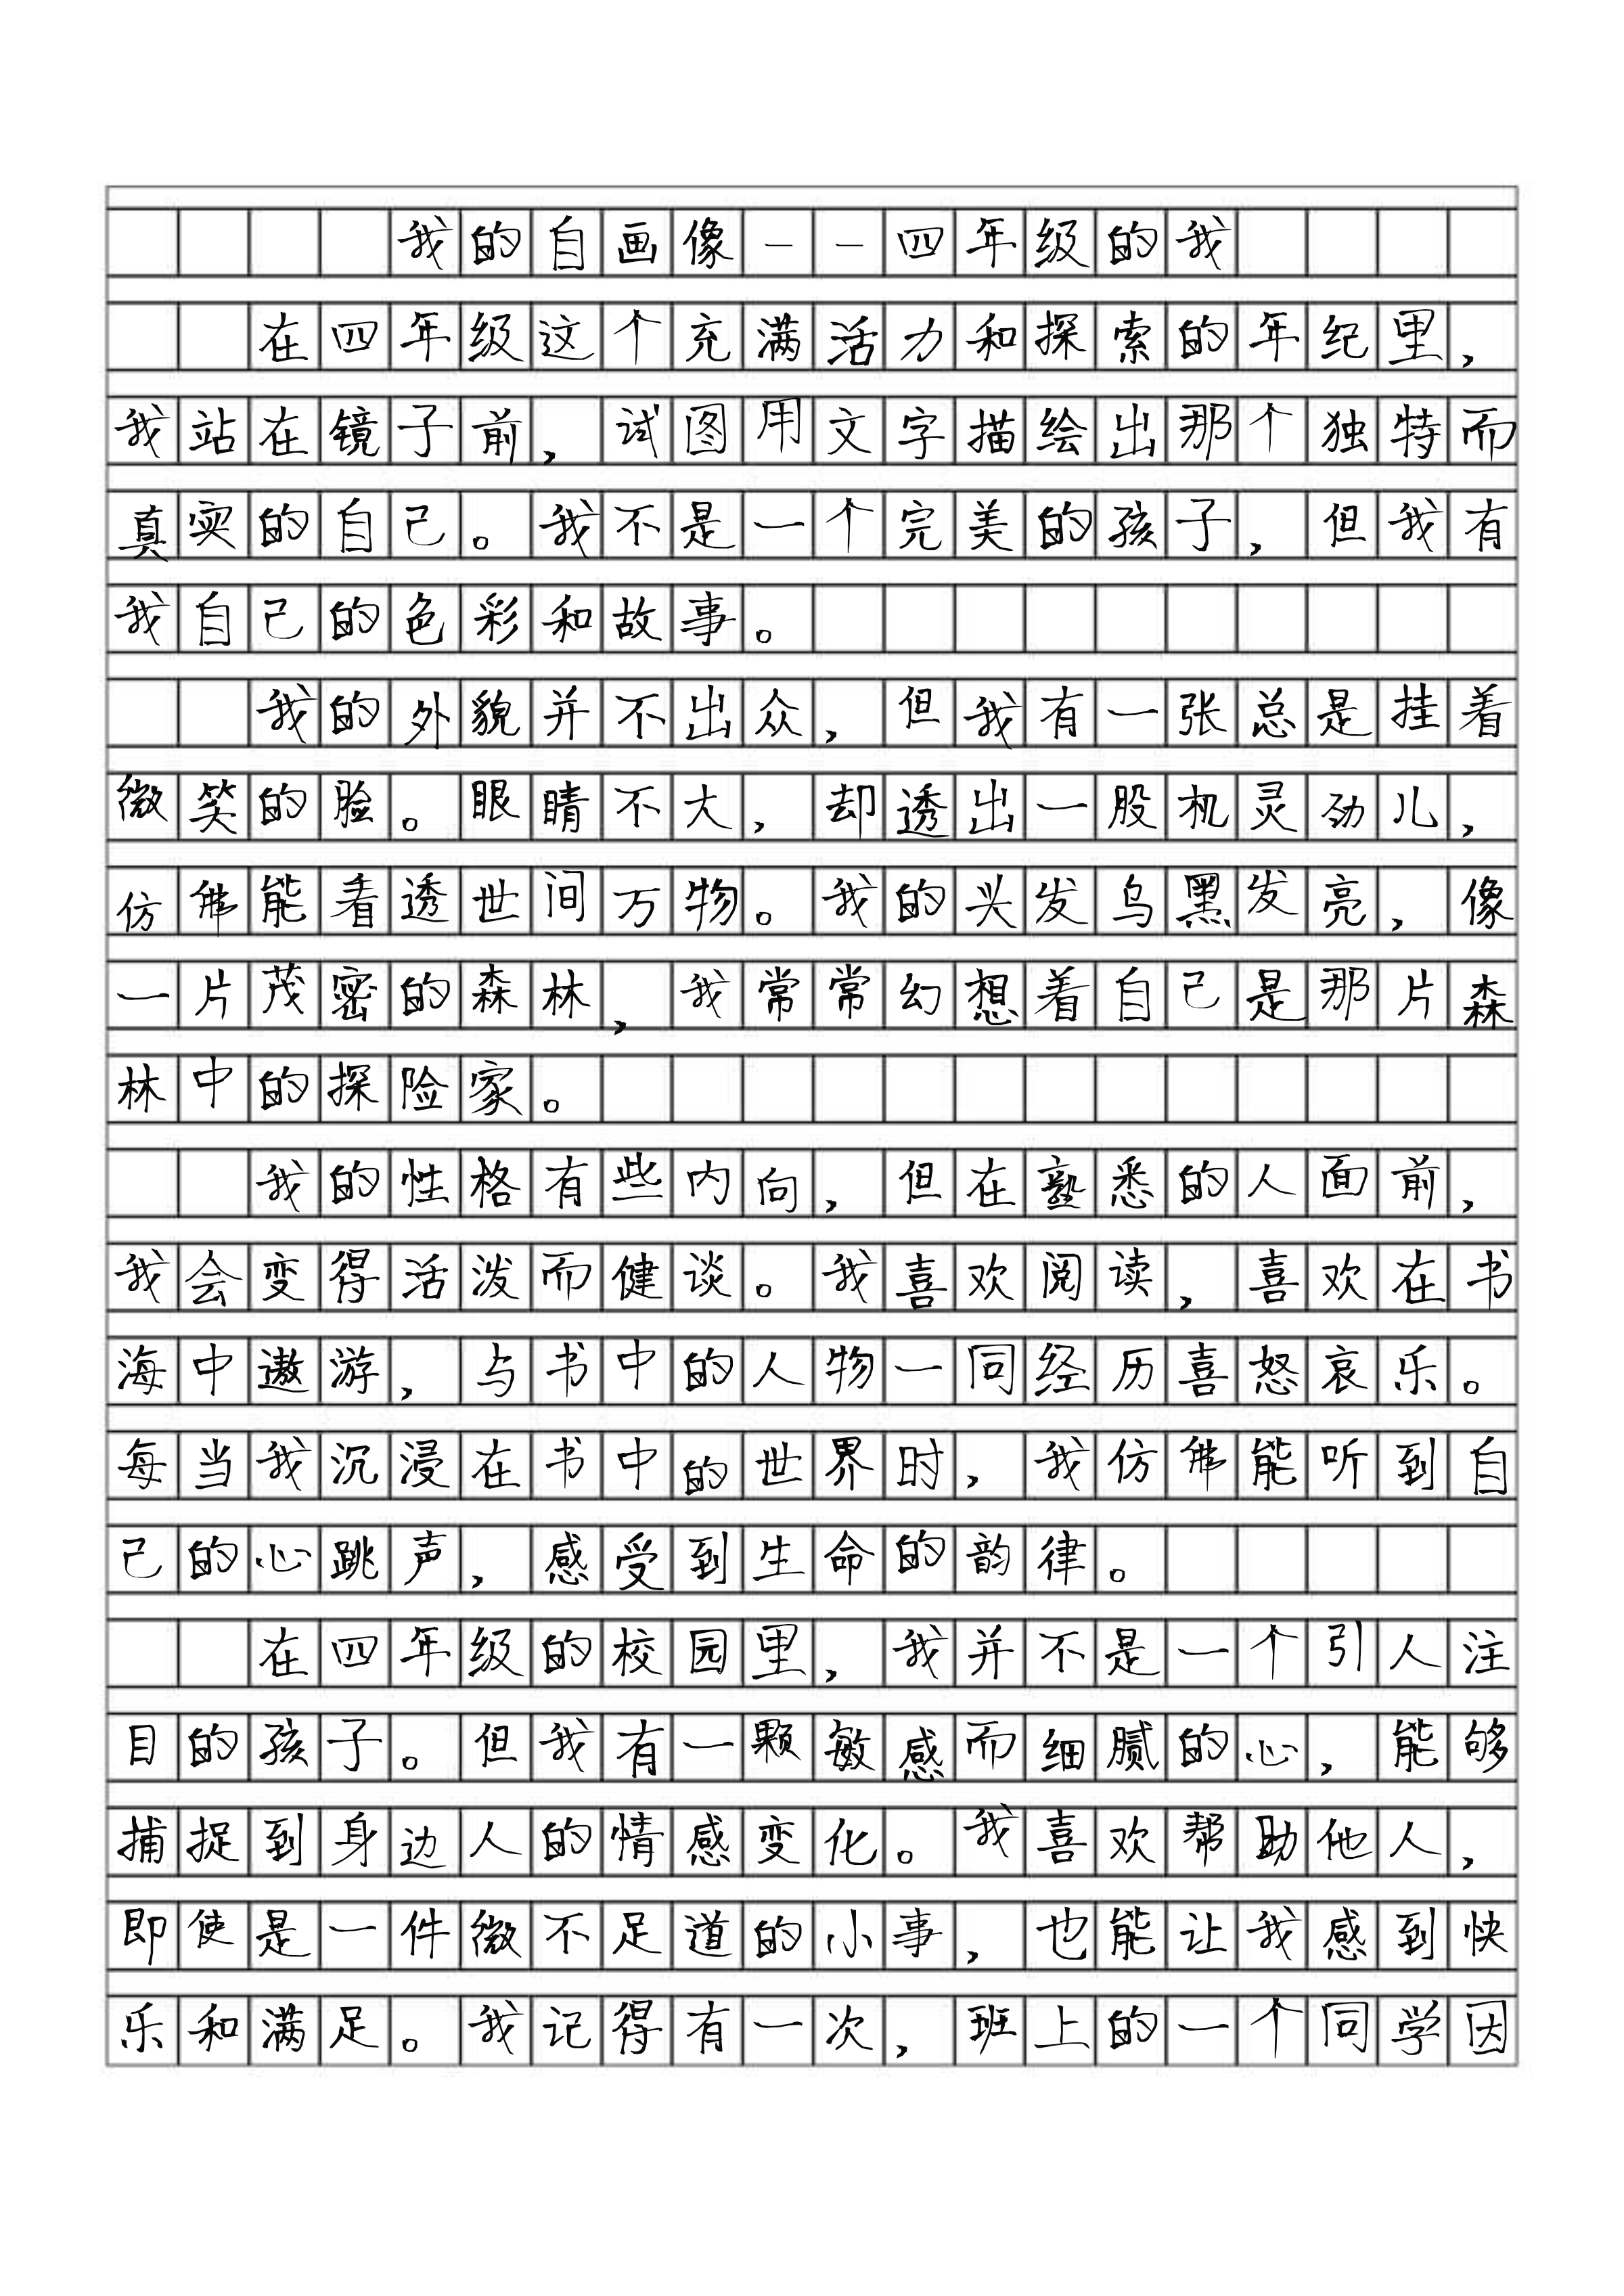 我的自画像--四年级的我
在四年级这个充满活力和探索的年纪里,
我站在镜子前,试图用文字描绘出那个独特而
真实的自己。我不是一个完美的孩子,但我有
我自己的色彩和故事。
我的外貌并不出众,但我有一张总是挂着
微笑的脸。眼睛不大,却透出一股机灵劲儿,
仿佛能看透世间万物。我的头发乌黑发亮,像
一片茂密的森林,我常常幻想着自己是那片森
林中的探险家。
我的性格有些内向,但在熟悉的人面前,
我会变得活泼而健谈。我喜欢阅读,喜欢在书
海中遨游,与书中的人物一同经历喜怒哀乐。
每当我沉浸在书中的世界时,我仿佛能听到自
己的心跳声,感受到生命的韵律。
在四年级的校园里,我并不是一个引人注
目的孩子。但我有一颗敏感而细腻的心,能够
捕捉到身边人的情感变化。我喜欢帮助他人,
即使是一件微不足道的小事,也能让我感到快
乐和满足。我记得有一次,班上的一个同学因